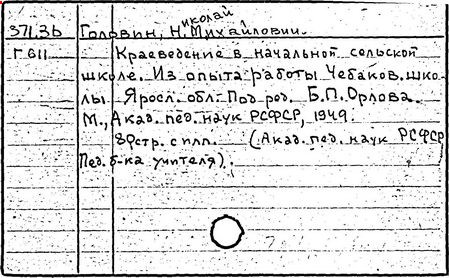 371.3б Головин, Николай Михайлович.
Г 611 Краеведение в начальной сельской
школе. Из опыта работы Чебаков. шко-
лы Яросл. обл. Под ред. Б.П. Орлова.
М., Акад. пед. наук РСФСР, 1949.
стр. с илл. (Акад. пед. наук РСФСР
Пед. б-ка учителя).